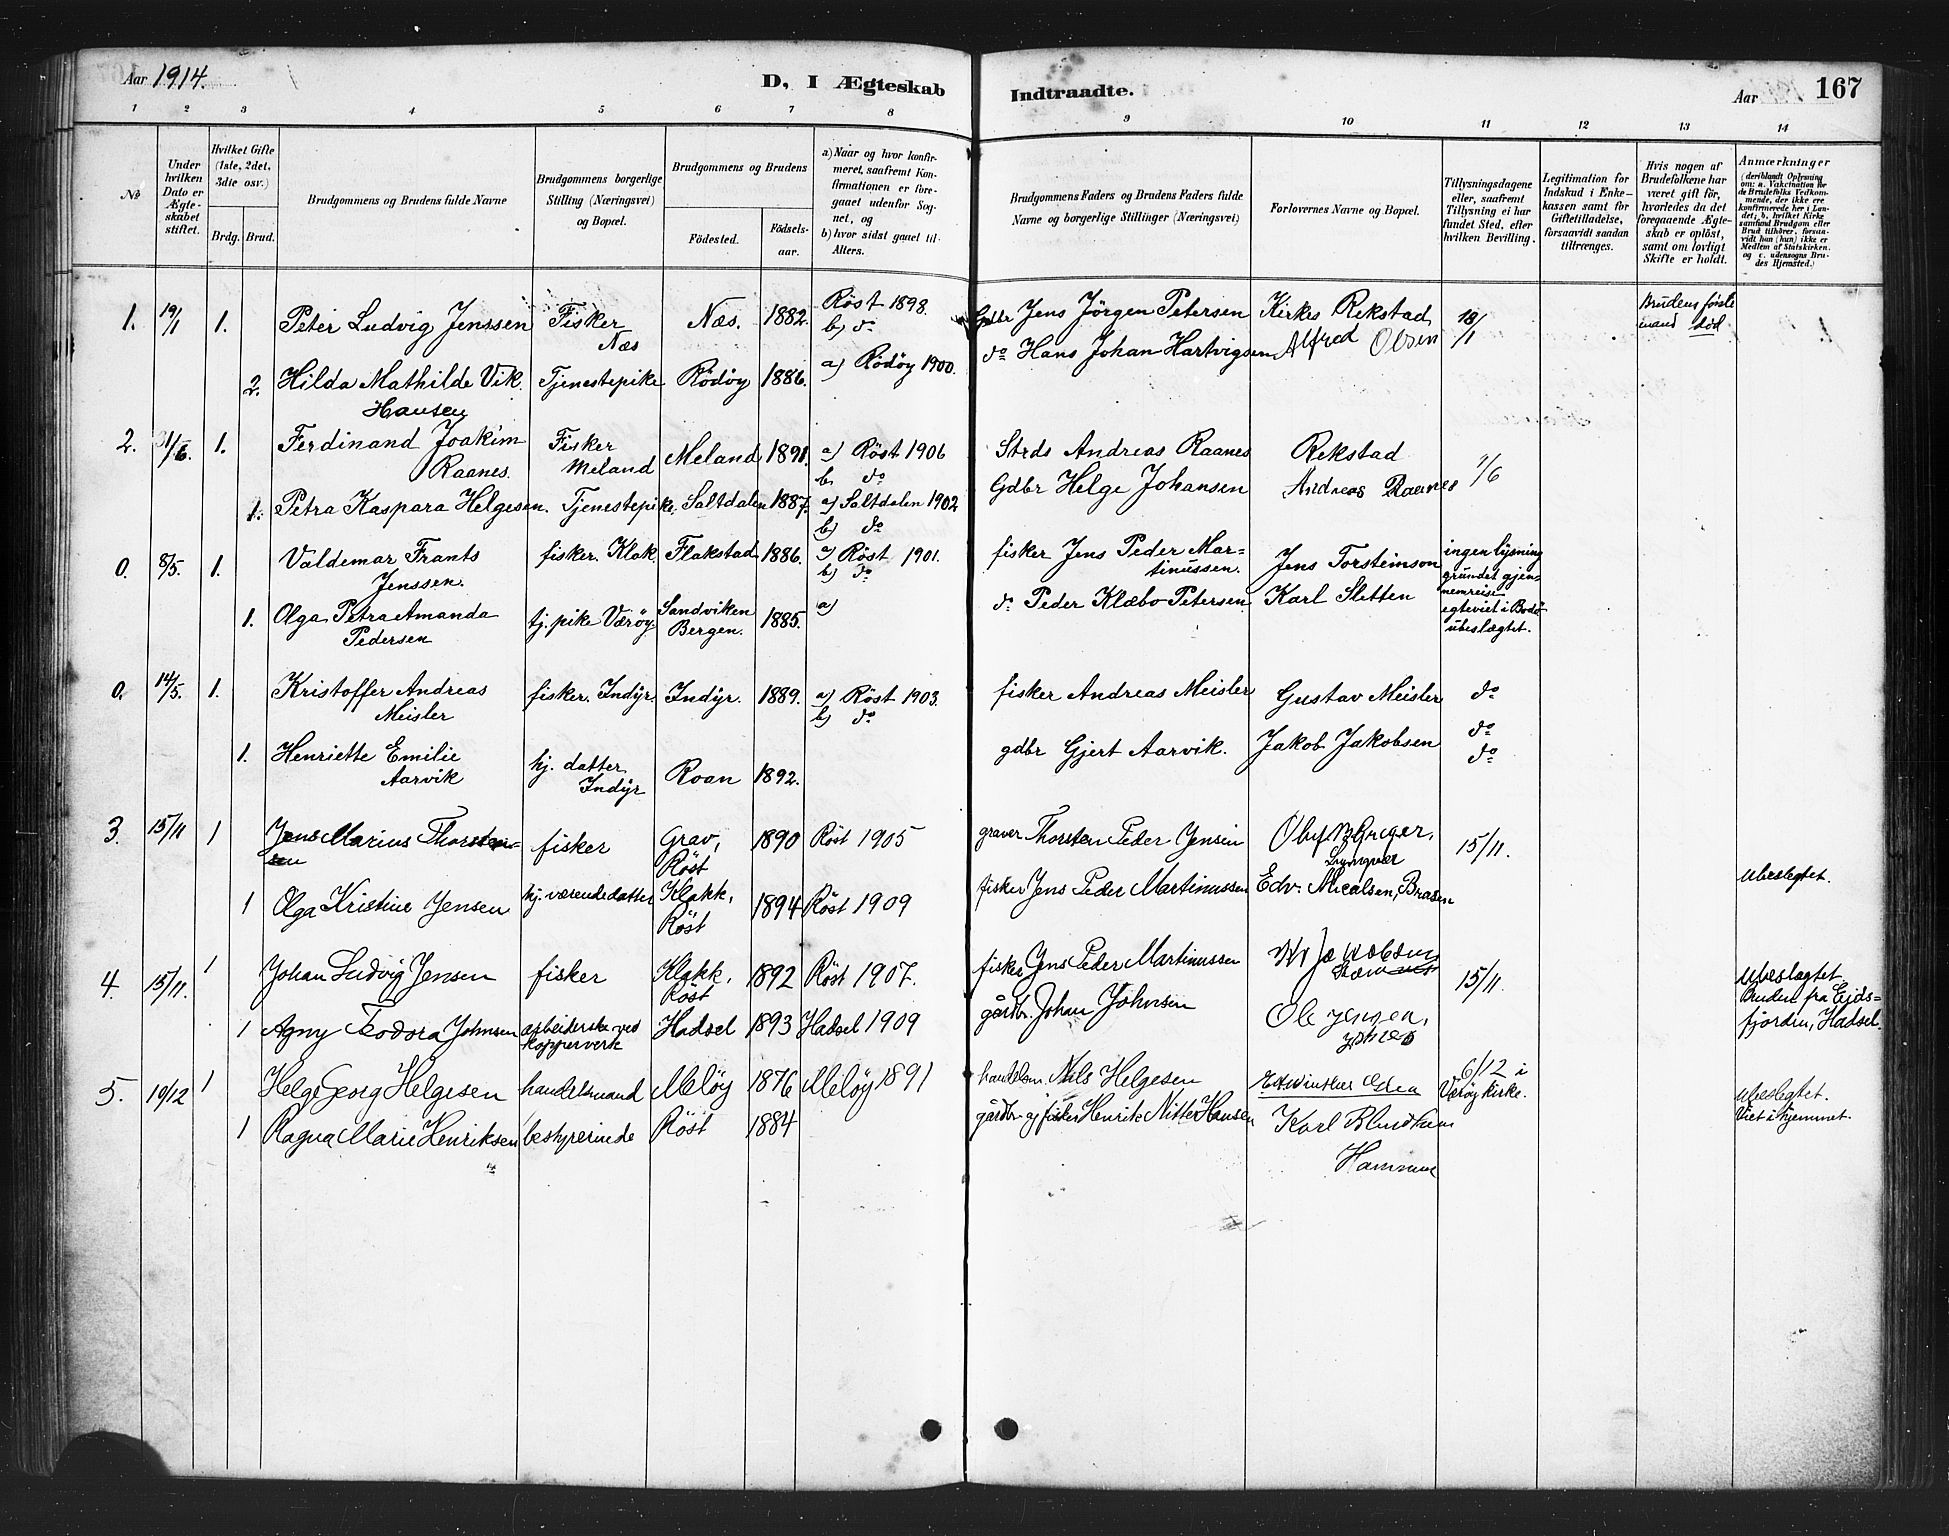 Aar 1914.
D, I Ægteskab Indtraadte.
Aar 167
1 2 3 4 5 6 7 8 9 10 11 12 13 14
No
Under hvilken Dato er Ægte-skabet stiftet.
Hvilket Gifte (1ste, 2det, 3die osv.)
Brdg. Brud.
Brudgommens og Brudens fulde Navne
Brudgommens borgerlige Stilling (Næringsvei) og Bopæl.
Brudgommens og Brudens
Fødested. Fødsels-aar.
a) Naar og hvor konfir-meret, saafremt Kon-firmationen er fore-gaaet udenfor Sog-net, og
b) hvor sidst gaaet til Alters.
Brudgommens Faders og Brudens Faders fulde Navne og borgerlige Stillinger (Næringsvei)
Forlovernes Navne og Bopæl.
Tillysningsdagene eller, saafremt Tillysning ei har fundet Sted, efter hvilken Bevilling.
Legitimation for Indskud i Enke-kassen samt for Giftetilladelse, forsaavidt saadan tiltrænges.
Hvis nogen af Brudefolkene har været gift før, hvorledes da det foregaaende Ægte-skab er opløst, samt om lovligt Skifte er holdt.
Anmærkninger
(deriblandt Oplysning om: a. Vakcination for de Brudefolks Vedkom-mende, der ikke ere konfirmerede her i Lan-det; b. hvilket Kirke samfund Brudgom eller Brud tilhører, forsaa-vidt han (hun) ikke er Medlem af Statskirken. og c. udensogns Bru-des Hjemsted.)
1. 19/1 1. Peter Ludvig Jenssen Fisker Næs Næs. 1882. Röst 1898. b) do Gdbr Jens Jörgen Petersen Kirkes. Rekstad 18/1 Brudens förste mand död
2. Hilda Mathilde Vik Hansen Tjenestepike Rödöy 1886. a) Rödöy 1900. do Hans Johan Hartvigsen Alfred Olsen
2. 1/6. 1. Ferdinand Joakim Raanes. Fisker Meland Meland 1891. a) Röst 1906 b. do Strds Andreas Raanes Rekstad 1/6
1. Petra Kaspara Helgesen. Tjenestepike. Saltdalen 1887. a) Saltdalen 1902 b) do Gdbr Helge Johansen Andreas Raanes
0. 8/5. 1. Valdemar Frants Jenssen. fisker. Klak. Flakstad 1886. a) Röst 1901. b) do fisker Jens Peder Mar=tinussen. Jens Torsteinson ingen lysning grundet gjen=nemreise egteviet i Bodö ubeslægtet.
1. Olga Petra Amanda Pedersen tj. pike Væröy Sandviken Bergen. 1885. a) do Peder Klæbo Petersen Karl Sletten
0. 14/5. 1. Kristoffer Andreas Meisler fisker. Indyr. Indyr. 1889. a) Röst 1903. b) do fisker Andreas Meisler Gustav Meisler do
1. Henriette Emilie Aarvik hj. datter Indyr Roan 1892. gdbr Gjert Aarvik. Jakob Jakobsen do do
3. 15/11 1 Jens Marius Thorsten=sen fisker Grav, Röst 1890 Röst 1905 graver Thorsten Peder Jensen 15/11.
1 Olga Kristine Jensen hj. værende datter Klakk, Röst 1894 Röst 1909 fisker Jens Peder Martinussen Edv. Micalsen, ubeslegtet.
4. 15/11. 1 Johan Ludvig Jensen fisker Klakk, Röst 1892 Röst 1907. fisker Jens Peder Martinussen 15/11. ubeslagtet Bruden fra Eids=fjorden, Hadsel.
1 Agny Teodora Johnsen arbeiderske ved kopperverk Hadsel 1893 Hadsel 1909 gårdbr. Johan Johnsen Ole Jensen,
5. 10/12 1 Helge Georg Helgesen handelsmand Meløy 1876 Meløy 1891 handelsm. Nils Helgesen 6/12 i Værøy kirke. ubeslegtet. Viet i hjemmet.
1 Ragna Marie Henriksen bestyrerinde Röst 1884 gårdbr og fisker Henrik Nitter Hansen Karl